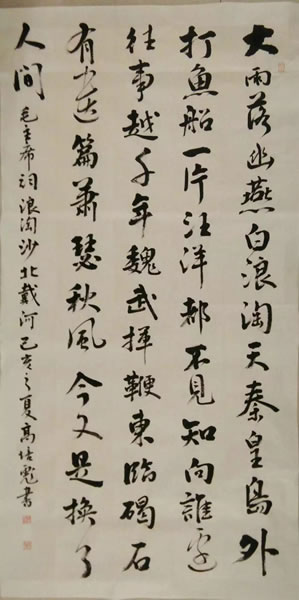 大雨落幽燕白浪淘天秦皇島外
打魚船一片汪洋都不見知向誰邊
往事越千年魏武揮鞭東臨碣石
有遺篇蕭瑟秋風今又是換了
人間 毛主席词浪淘沙北戴河己亥之夏高書